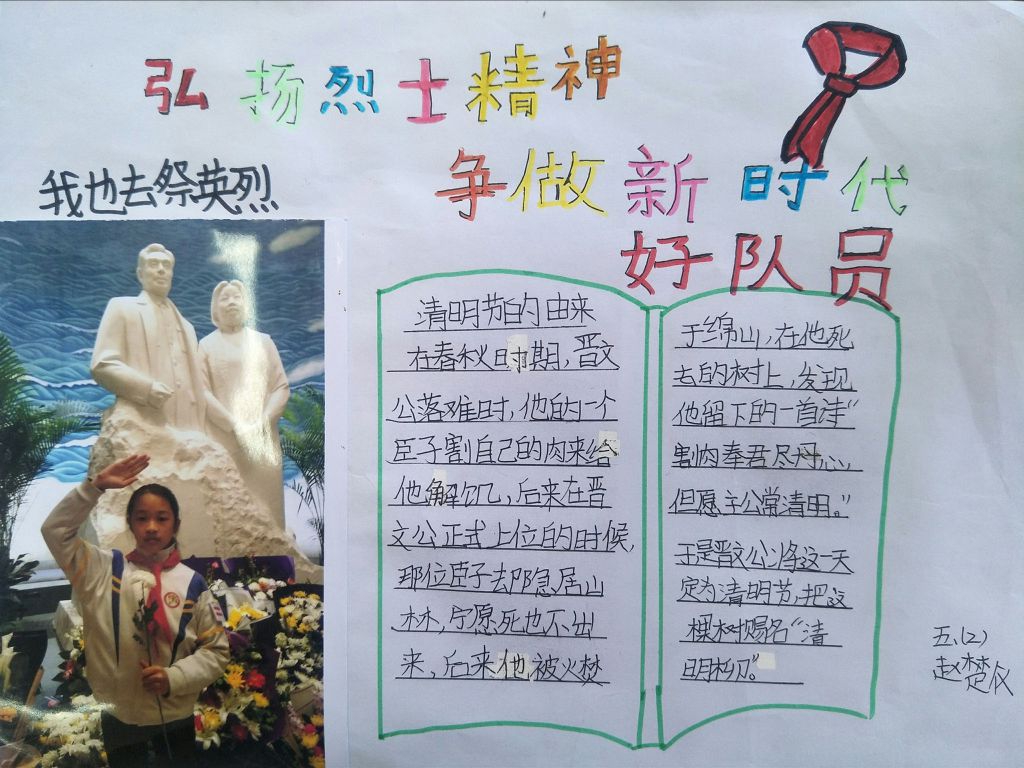 弘扬烈士精神
争做新时代
好队员
我也去祭英烈
清明节的由来
在春秋时期,晋文
公落难时,他的一个
臣子割自己的肉来给
他解饥,后来在晋
文公正式上位的时候,
那位臣子去却隐居山
林,宁愿死也不出
来,后来他被火焚
于绵山,在他死
去的树上,发现
他留下的一首诗“
割肉奉君尽丹心,
但愿主公常清明。”
于是晋文公将这一天
定为清明节,把这
棵树赐名“清
明柳。”
五.(2)
赵楚仪